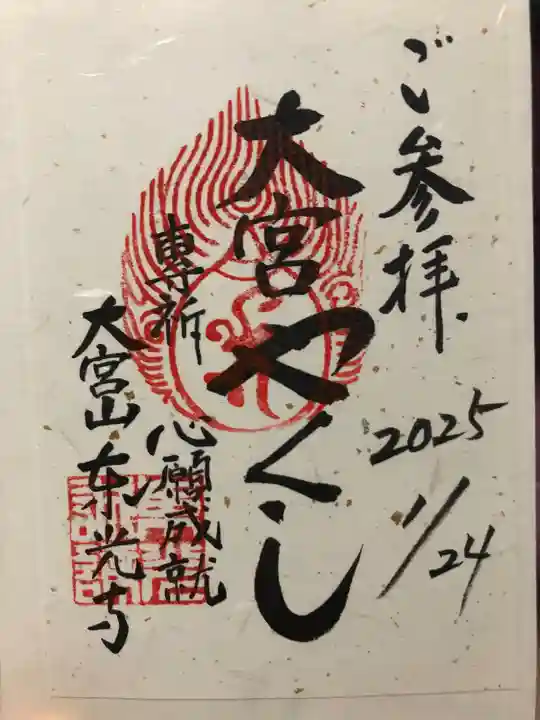 ご参拝
2025
1/24
大宮やくし
専祈
心願成就
大宮山东光寺